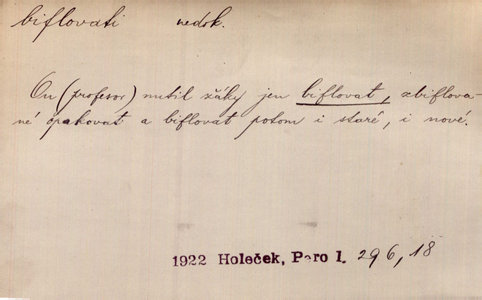 biflovati nedok.
On (profesor) nutil žáky jen biflovat, zbiflova-
né opakovat a biflovat potom i staré, i nové.
1922 Holeček, Pero I. 296, 18